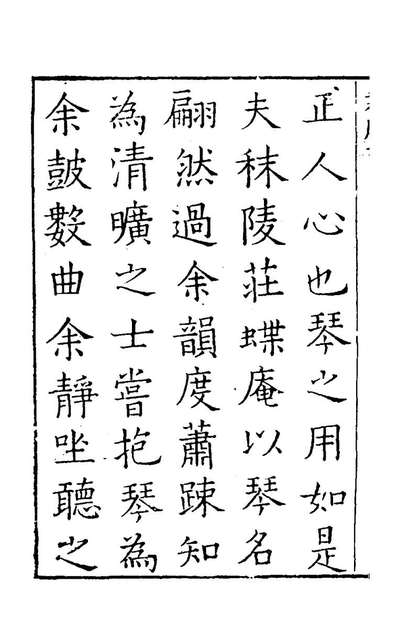 正人心也琴之用如是
夫秣陵莊蝶庵以琴名
翩然過余韻度蕭踈知
為清曠之士嘗抱琴為
余鼓數曲余靜坐聽之